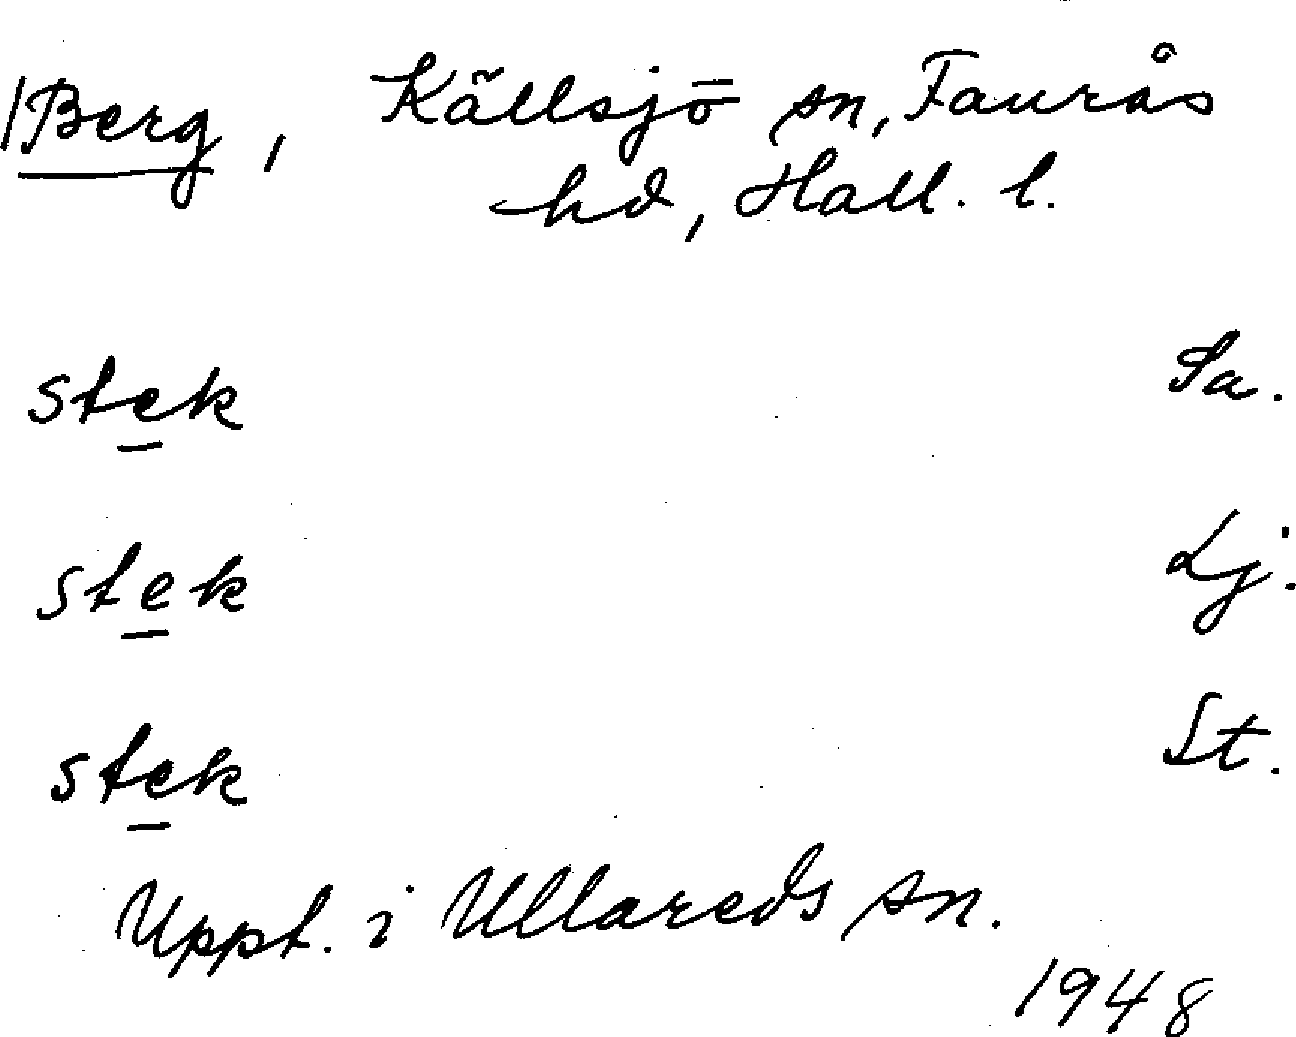 /Berg, Källsjö sn, Faurås
hd, Hall. l.
stek Sa.
stek Lj.
stek St.
Uppt. i Ullareds sn.
1948